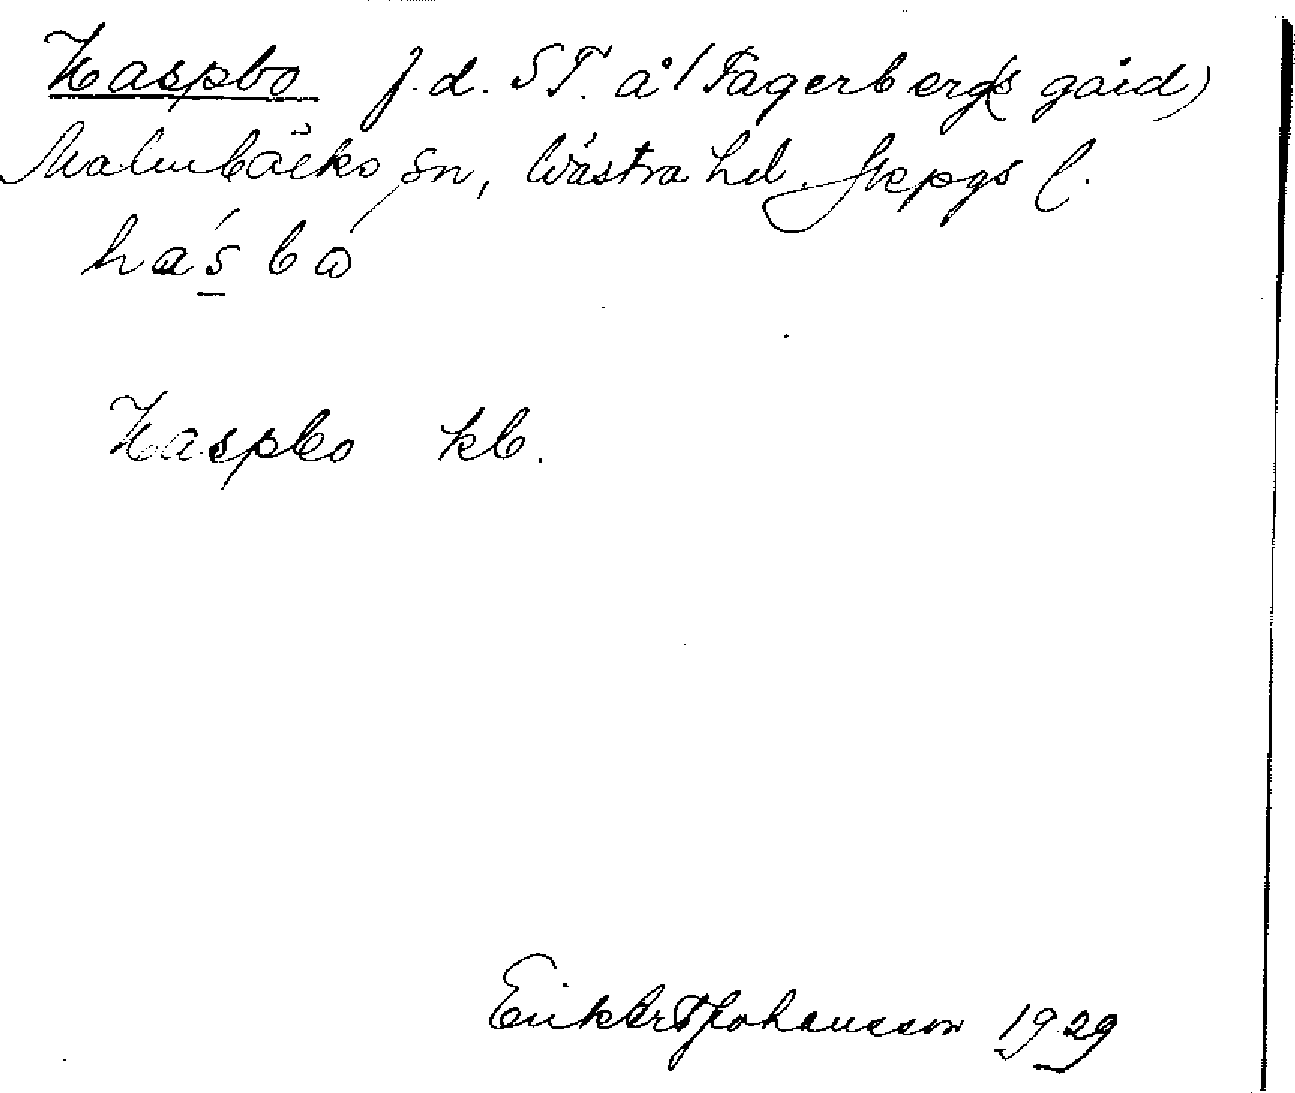 Haspbo f.d. ST. å (Fagerbergs gård)
Malmbäcks sn, Västra hd. Jkpgs l.
hásbo
Haspbo kb.
Johansson 1929